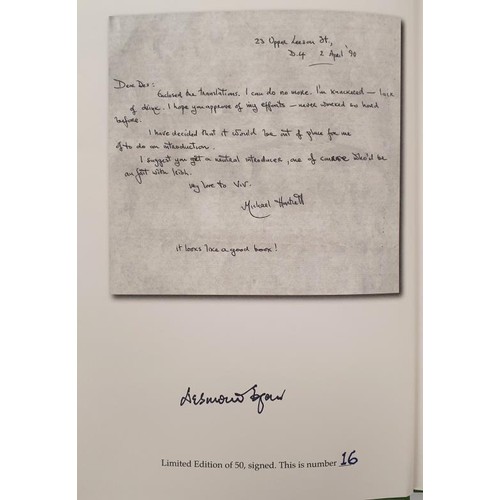 23 Upper Leeson St,
D.4 2 April '90
Dear Des:
Enclosed the translations. I can do no more. I'm knackered — luck
of drink. I hope you approve of my efforts — never worked so hard
before.
I have decided that it would be out of place for me
to do an introduction.
I suggest you get a neutral introducer, one of course who'd be
au fait with Irish.
my love to Viv.
Michael Hartnett
it looks like a good book!
Desmond Egan
Limited Edition of 50, signed. This is number 16